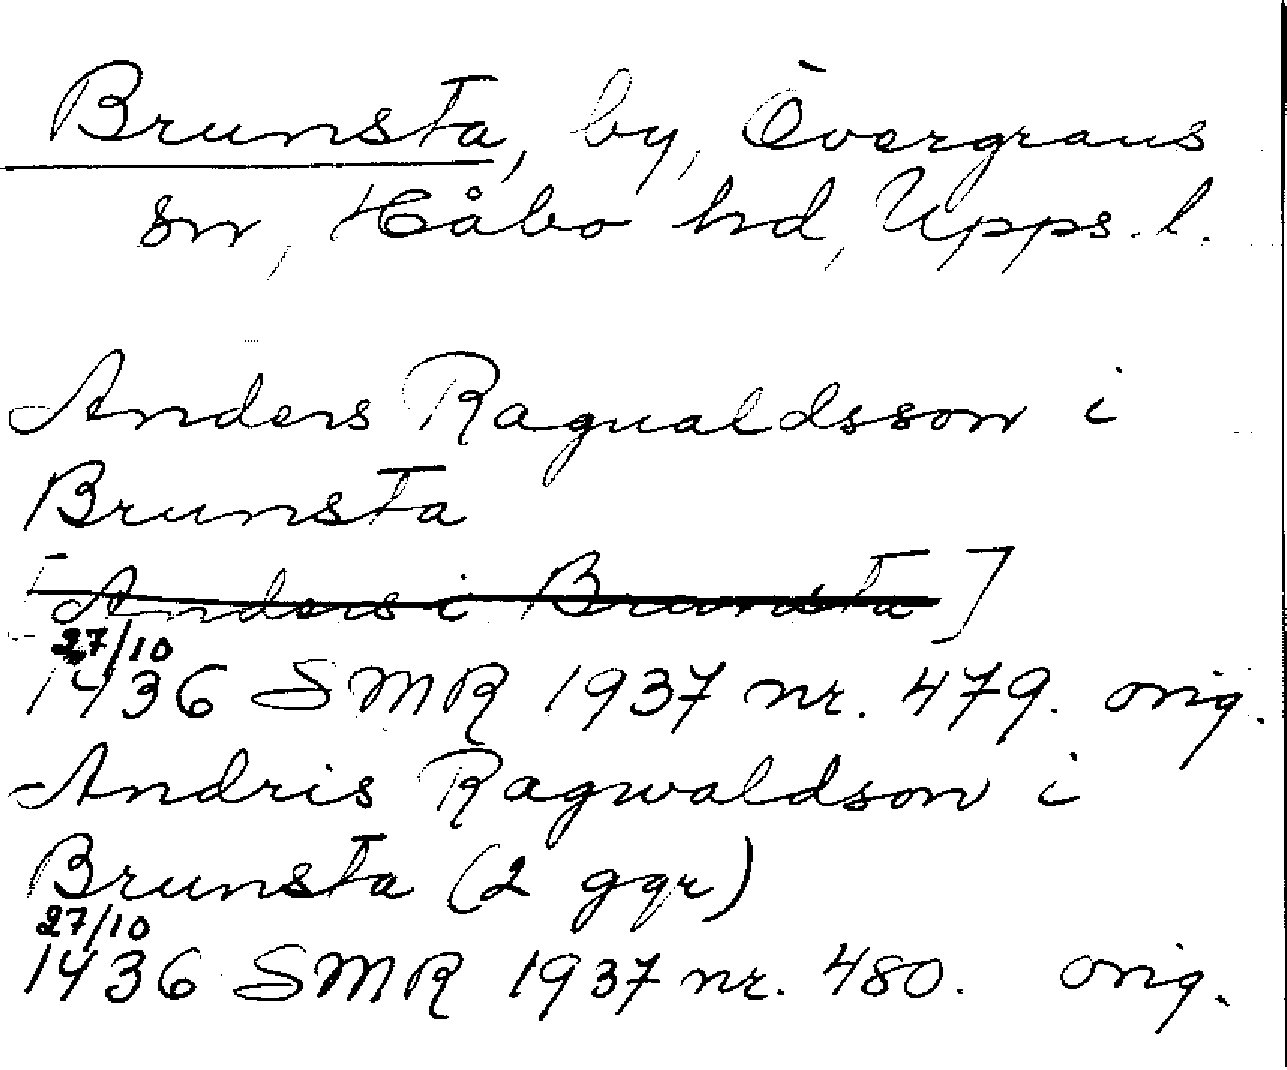 Brunsta, by, Övergrans
sn, Håbo hd, Upps. l.
Anders Ragualdsson i
Brunsta
[Anders i Brunsta]
27/10
1436 SMR 1937 nr. 479. orig.
Andris Ragwaldson i
Brunsta (2 ggr)
27/10
1436 SMR 1937 nr. 480. orig.